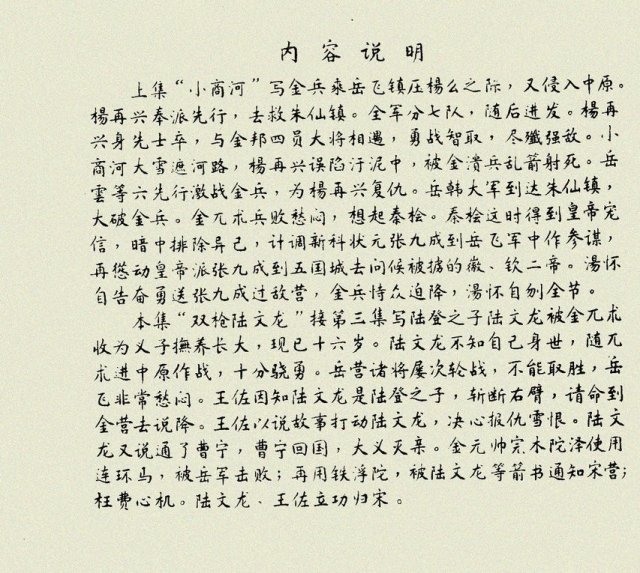 内容说明
上集“小商河”写金兵乘岳飞镇压楊么之际，又侵入中原。
楊再兴奉派先行，去救朱仙镇。全军分七队，随后进发。楊再
兴身先士卒，与金邦四员大将相遇，勇战智取，尽殲强敌。小
商河大雪遮河路，楊再兴误陷汙泥中，被金潰兵乱箭射死。岳
雲等六先行激战金兵，为楊再兴复仇。岳韩大军到达朱仙镇，
大破金兵。金兀朮兵败愁闷，想起秦桧。秦桧这时得到皇帝宠
信，暗中排除异己，计调新科状元张九成到岳飞军中作参谋，
再慫动皇帝派张九成到五国城去问候被掳的徽、钦二帝。湯怀
自告奋勇送张九成过敌营，金兵恃众迫降，湯怀自刎全节。
本集“双枪陆文龙”接第三集写陆登之子陆文龙被金兀朮
收为义子撫养长大，现已十六岁。陆文龙不知自己身世，随兀
朮进中原作战，十分骁勇。岳营诸将屡次轮战，不能取胜，岳
飞非常愁闷。王佐因知陆文龙是陆登之子，斩断右臂，请命到
金营去说降。王佐以说故事打动陆文龙，决心报仇雪恨。陆文
龙又说通了曹宁，曹宁回国，大义灭亲。金元帅完木陀泽使用
连环马，被岳军击败；再用铁浮陀，被陆文龙等箭书通知宋营；
枉费心机。陆文龙、王佐立功归宋。